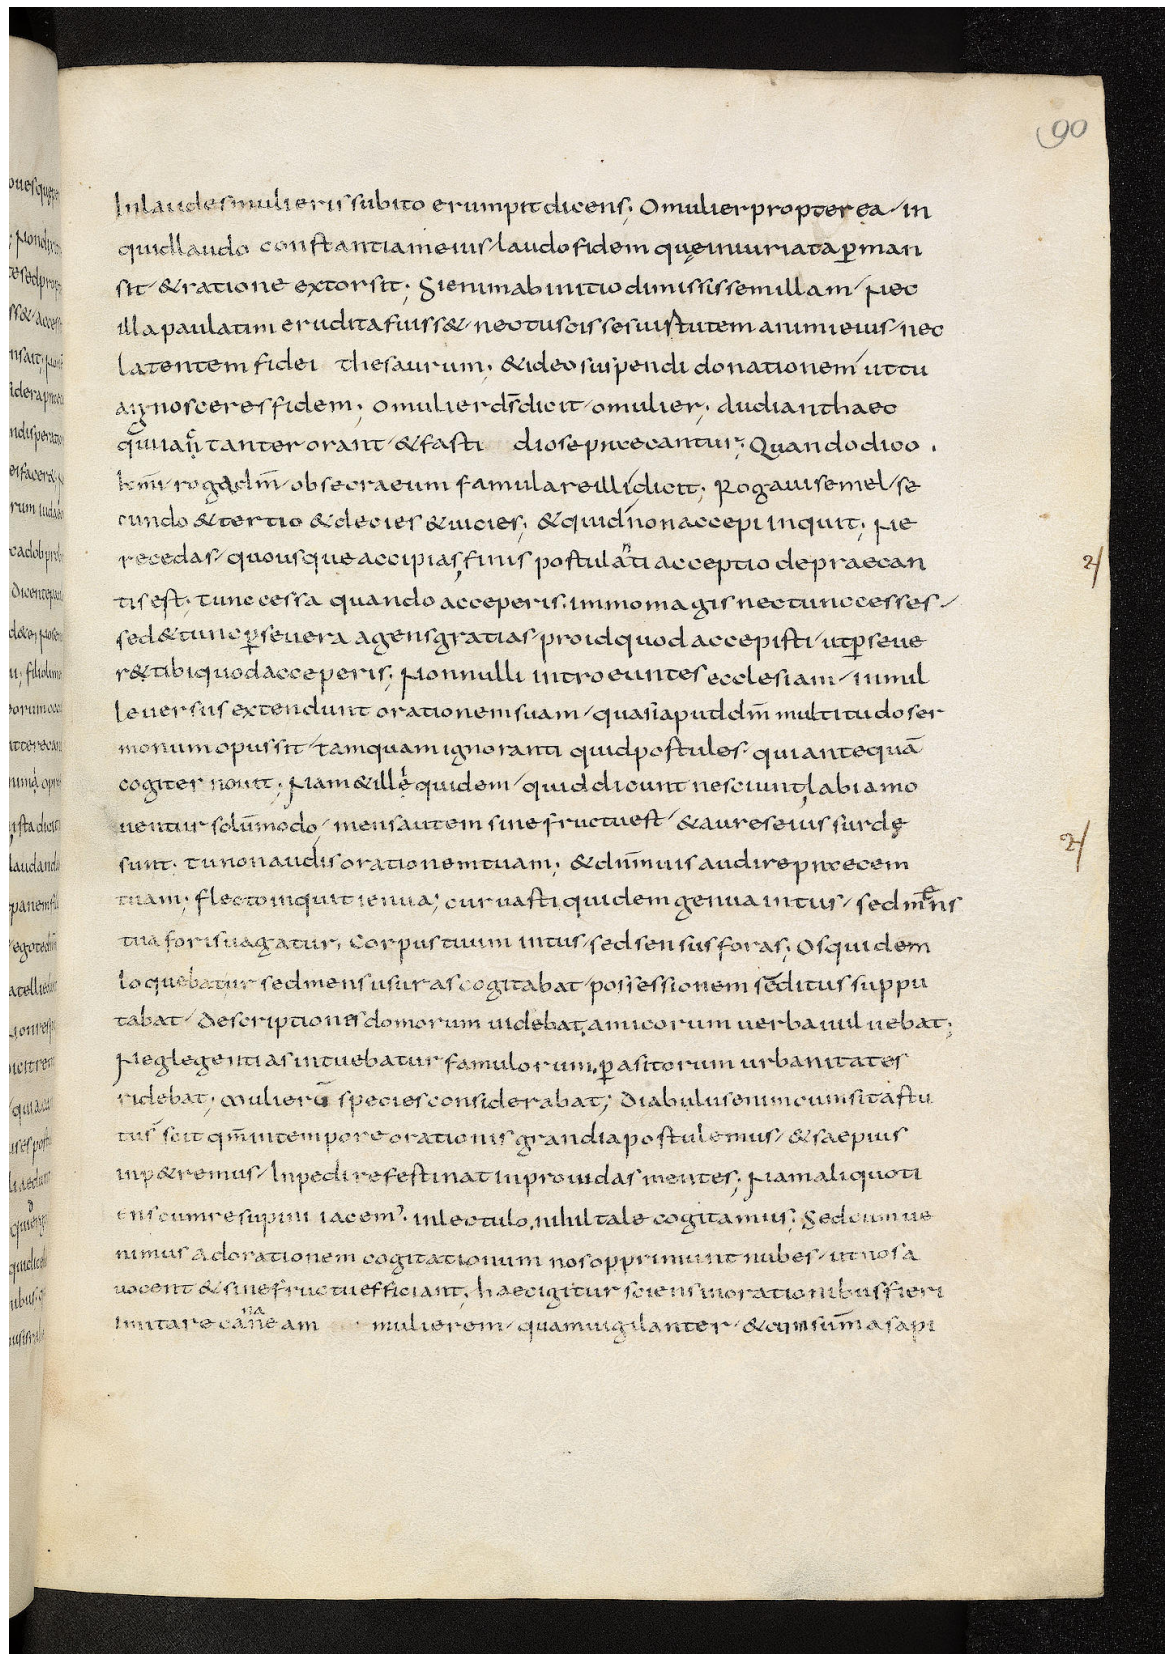 90
In laudes mulieris subito erumpit dicens; O mulier propter ea in
quid laudo constantiam eius laudo fidem quę iniuriata ꝑman
sit & ratione extorsit; Si enim ab initio dimississem illam Nec
illa paulatim erudita fuiss& nec tu scisses uirtutem animi eius nec
latentem fidei thesaurum; & ideo suspendi donationem ut tu
agnosceres fidem; O mulier dn̄s dicit o mulier; Audiant haec
orant & fastidiose praecantur; Quando dico
roga dm̄ obsecra eum famulare illi dicit; Rogaui semel se
cundo & tertio & decies & uicies; & quid non accepi inquit; Ne
recedas quousque accipias, finis postulanti acceptio depraecan
tis est; tunc cessa quando acceperis. immo magis nec tunc cesses
sed & tunc ꝑseuera agens gratias pro id quod accepisti ut ꝑseue
r& tibi quod acceperis; Nonnulli introeuntes ecclesiam in mil
le uersus extendunt orationem suam quasi aput dm̄ multitudo ser
monum opus sit tamquam ignoranti quid postules qui antequā
cogiter nouit; Nam & illę quidem quid dicunt nesciunt, labia mo
uentur solūmodo mens autem sine fructu est & aures eius surdę
sunt. tu non audis orationem tuam; & dn̄m uis audire praecem
tuam; flecto inquit ienua; curuasti quidem genua intus sed mens
tua foris uagatur, Corpus tuum intus sed sensus foras; Os quidem
loquebatur sed mens usuras cogitabat possessionem reditus suppu
tabat Descriptiones domorum uidebat, amicorum uerba uiluebat;
Neglegentias intuebatur famulorum, ꝑasitorum urbanitates
ridebat; Mulierū species considerabat; Diabulus enim cum sit astu
tus scit qm̄ in tempore orationis grandia postulemus & saepius
inp&remus Inpedire festinat inprouidas mentes; Nam aliquoti
ens cum resupini iacem' in lectulo, nihil tale cogitamus; Sed cum ue
nimus ad orationem cogitationum nos opprimunt nubes ut nos a
uocent & sine fructu efficiant; haec igitur sciens in orationibus fieri
imitare cananeam mulierem quam uigilanter & cum summa sapi